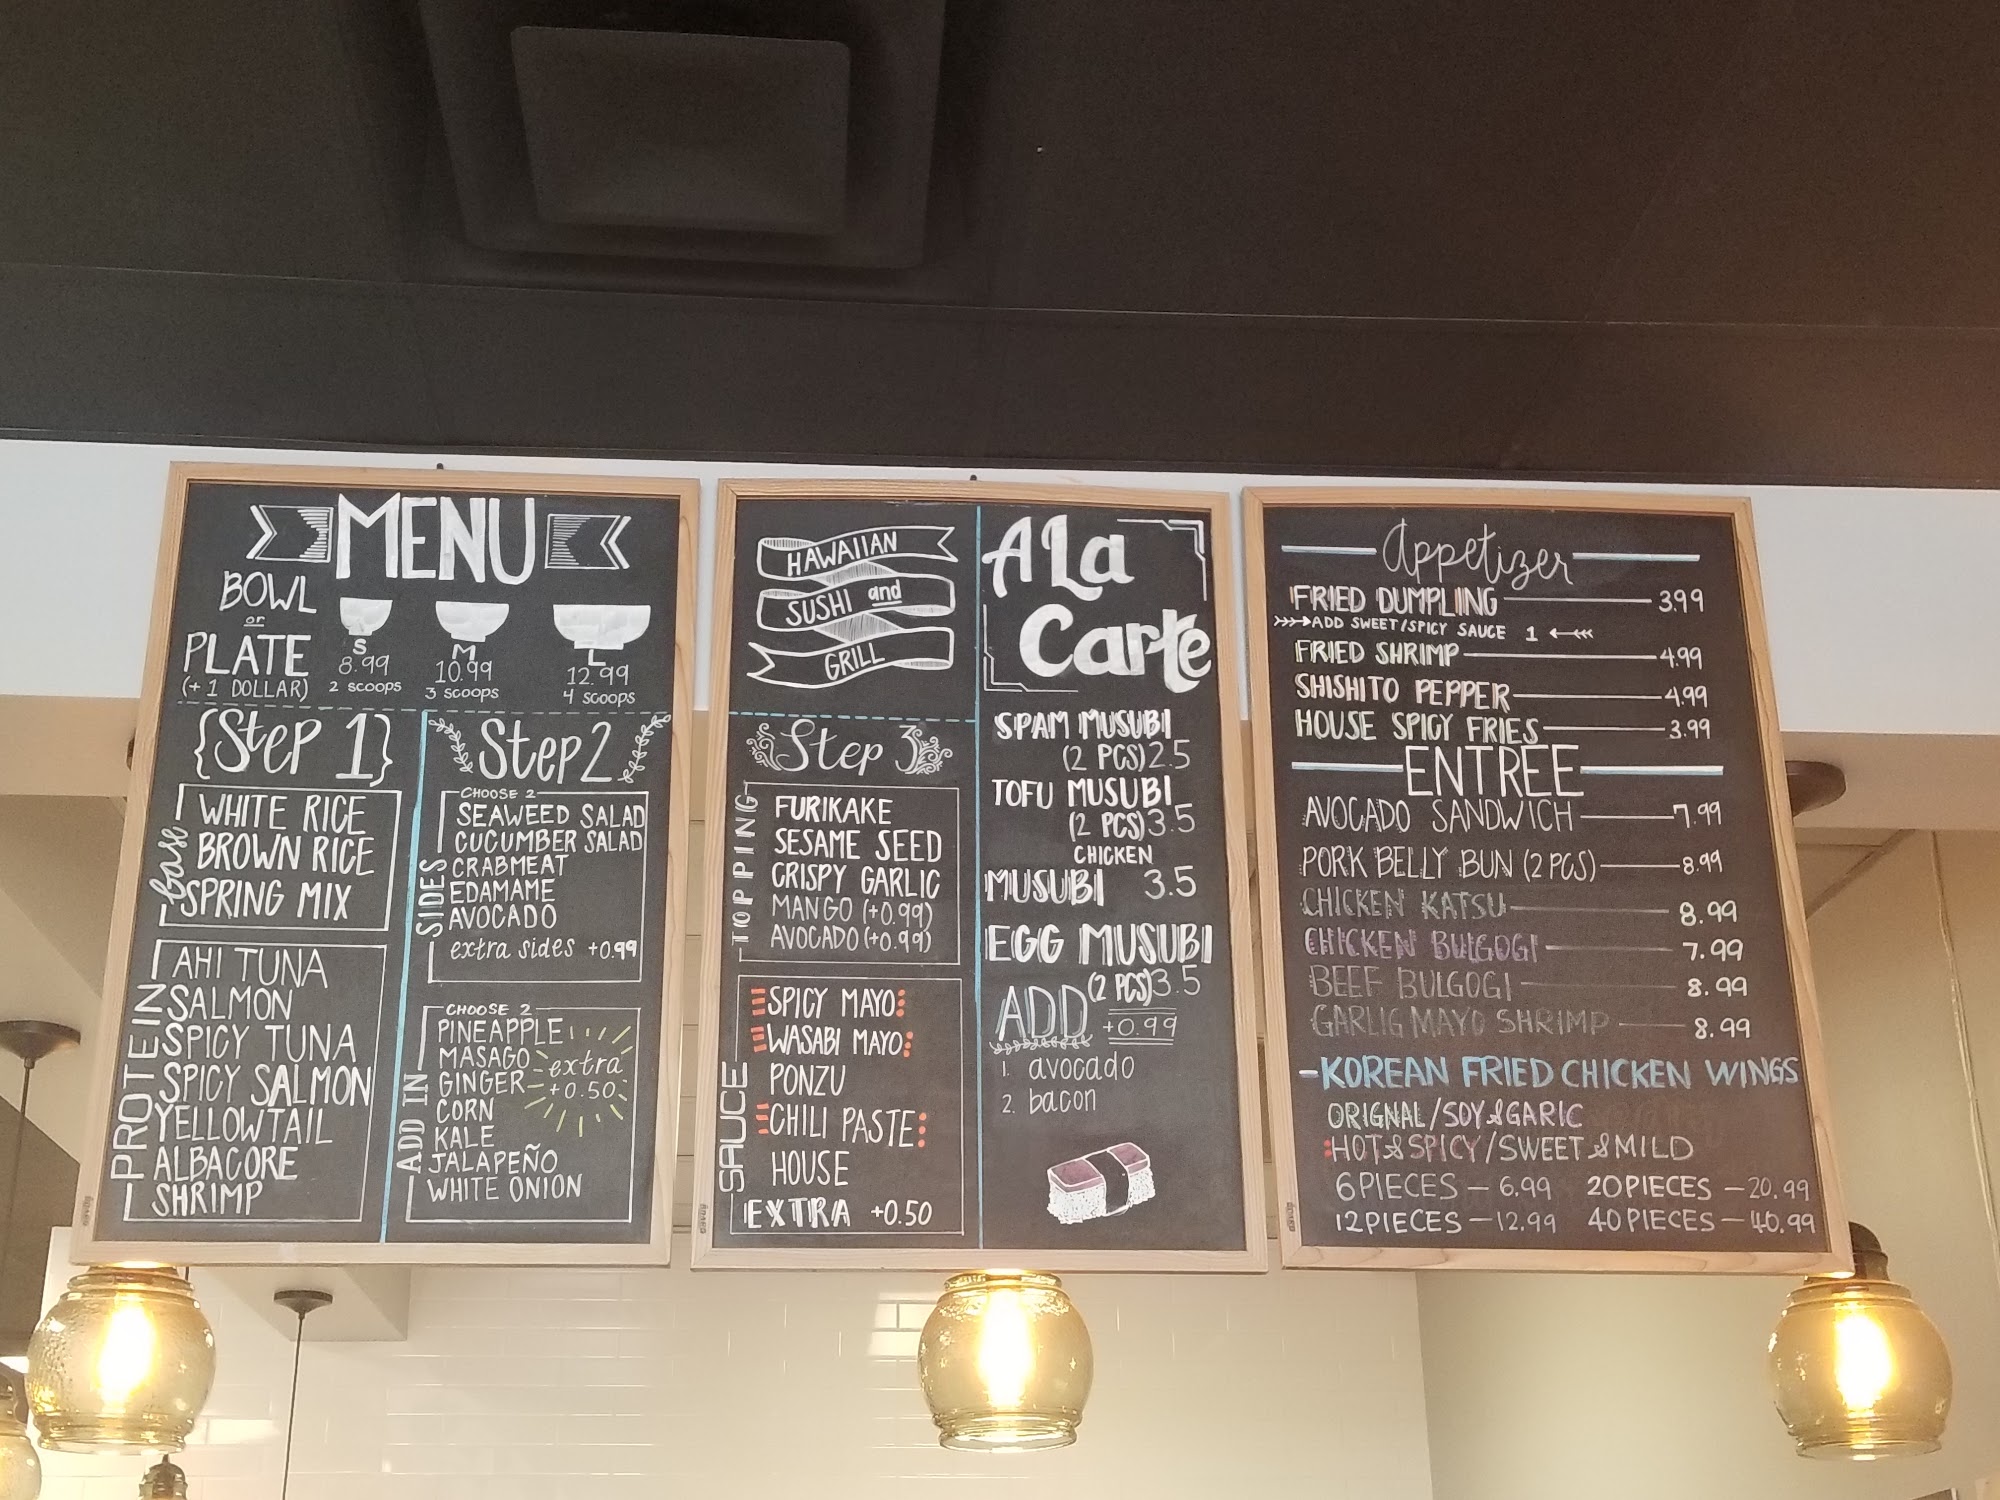 MENU
BOWL
or
PLATE
(+ 1 DOLLAR)
S
8.99
2 SCOOPS
M
10.99
3 SCOOPS
L
12.99
4 SCOOPS
{Step 1}
base
WHITE RICE
BROWN RICE
SPRING MIX
PROTEINS
AHI TUNA
SALMON
SPICY TUNA
SPICY SALMON
YELLOWTAIL
ALBACORE
SHRIMP
Step 2
CHOOSE 2
SIDES
SEAWEED SALAD
CUCUMBER SALAD
CRABMEAT
EDAMAME
AVOCADO
extra sides +0.99
CHOOSE 2
ADD IN
PINEAPPLE
MASAGO
GINGER
CORN
KALE
JALAPEÑO
WHITE ONION
extra
+0.50
HAWAIIAN
SUSHI and
GRILL
Step 3
TOPPING
FURIKAKE
SESAME SEED
CRISPY GARLIC
MANGO (+0.99)
AVOCADO (+0.99)
SAUCE
SPICY MAYO
WASABI MAYO
PONZU
CHILI PASTE
HOUSE
EXTRA +0.50
A La
Carte
SPAM MUSUBI
(2 PCS) 2.5
TOFU MUSUBI
(2 PCS) 3.5
CHICKEN
MUSUBI 3.5
EGG MUSUBI
(2 PCS) 3.5
ADD +0.99
1. avocado
2. bacon
Appetizer
FRIED DUMPLING 3.99
ADD SWEET/SPICY SAUCE 1
FRIED SHRIMP 4.99
SHISHITO PEPPER 4.99
HOUSE SPICY FRIES 3.99
ENTREE
AVOCADO SANDWICH 7.99
PORK BELLY BUN (2 PCS) 8.99
CHICKEN KATSU 8.99
CHICKEN BULGOGI 7.99
BEEF BULGOGI 8.99
GARLIG MAYO SHRIMP 8.99
-KOREAN FRIED CHICKEN WINGS
ORIGNAL/SOY & GARIC
HOT & SPICY/SWEET & MILD
6 PIECES — 6.99 20 PIECES — 20.99
12 PIECES — 12.99 40 PIECES — 40.99